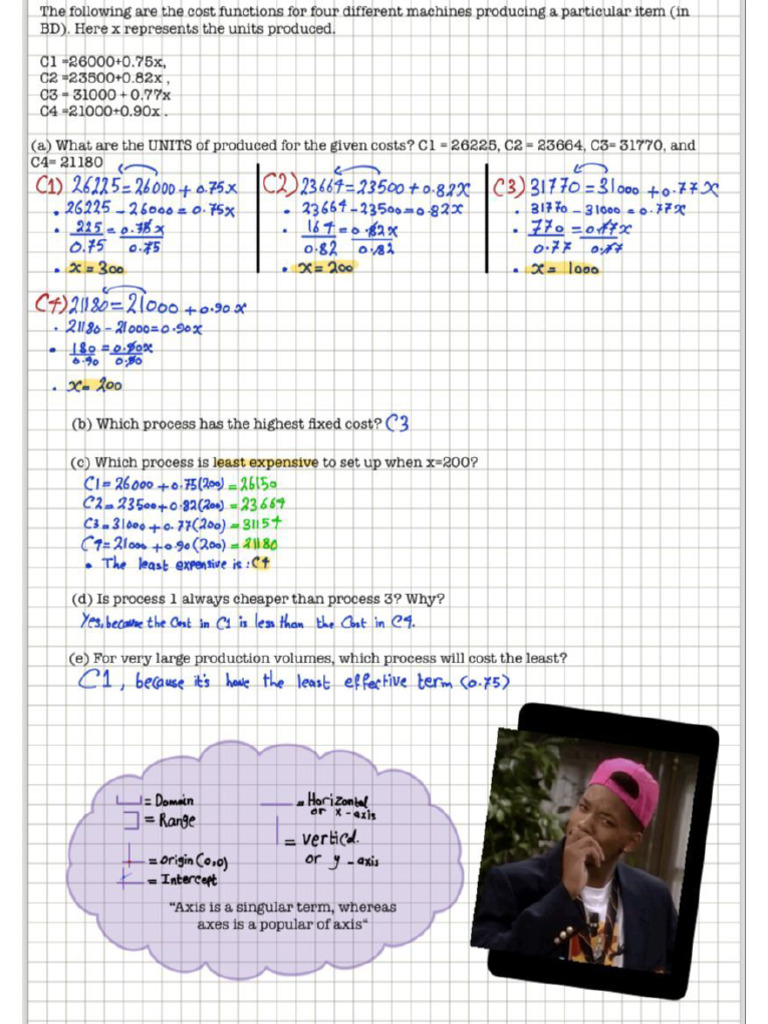 The following are the cost functions for four different machines producing a particular item (in
BD). Here x represents the units produced.
C1 =26000+0.75x,
C2 =23500+0.82x ,
C3 = 31000 + 0.77x
C4 =21000+0.90x .
(a) What are the UNITS of produced for the given costs? C1 = 26225, C2 = 23664, C3= 31770, and
C4= 21180
C1) 26225=26000 + 0.75x
• 26225 - 26000 = 0.75x
• 225 = 0.75x
0.75 0.75
• x = 300
C2) 23664=23500 + 0.82x
• 23664 - 23500=0.82x
• 164 = 0.82x
0.82 0.82
• x = 200
C3) 31770 = 31000 + 0.77x
• 31770 - 31000 = 0.77x
• 770 = 0.77x
0.77 0.77
• x = 1000
C4) 21180=21000 + 0.90x
• 21180 - 21000=0.90x
• 180 = 0.90x
0.90 0.90
• x= 200
(b) Which process has the highest fixed cost? C3
(c) Which process is least expensive to set up when x=200?
C1 = 26000 + 0.75(200) = 26150
C2 = 23500+0.82(200) = 23664
C3 = 31000 + 0.77(200) = 31154
C4 = 21000 + 0.90(200) = 21180
• The least expensive is : C4
(d) Is process 1 always cheaper than process 3? Why?
Yes, because the Cost in C1 is less than the Cost in C4.
(e) For very large production volumes, which process will cost the least?
C1, because it's have the least effective term (0.75)
= Domain
= Range
= origin (0,0)
= Intercept
= Horizontal
or x-axis
= vertical.
or y-axis
"Axis is a singular term, whereas
axes is a popular of axis"